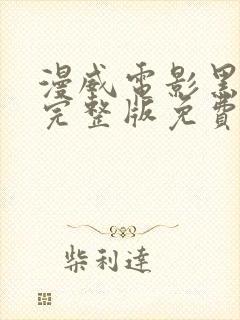 漫威電影黑
完整版免費
柴利達